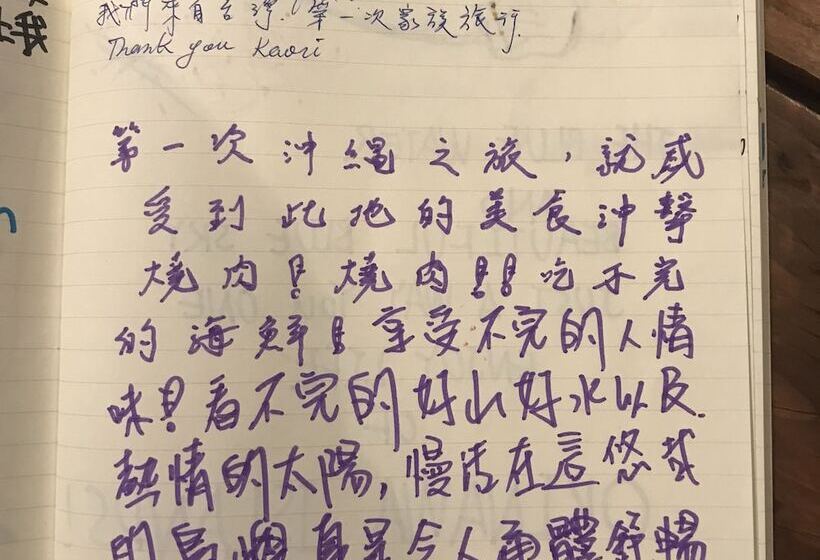 我們來自台灣,第一次家族旅行.
Thank you Kaori
第一次沖繩之旅,就感
受到此地的美食沖擊
燒肉!燒肉!!吃不完
的海鮮!!享受不完的人情
味!!看不完的好山好水以及
熱情的太陽,慢活在這悠哉
的島嶼真是令人通體舒暢